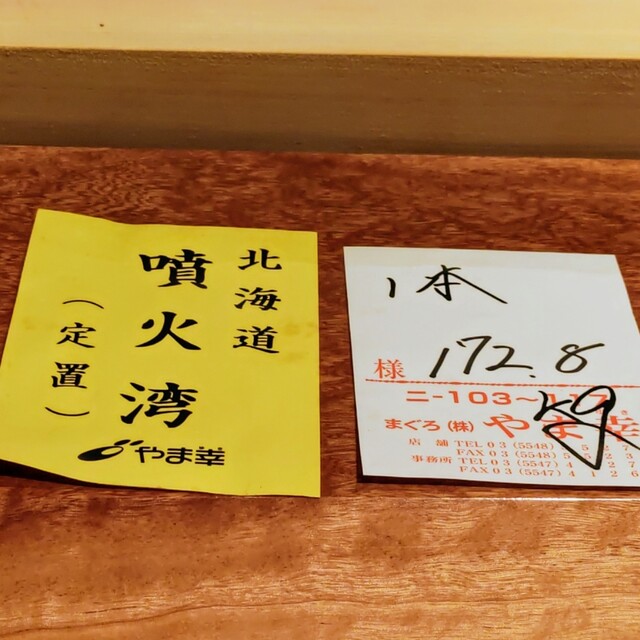 北海道
噴火湾
(定置)
やま幸
1本
172.8
kg
様
ニ-103~
まぐろ(株)やま幸
店舗 TEL 03(5548)
FAX 03(5548)
事務所 TEL 03(5547)4
FAX 03(5547)4126